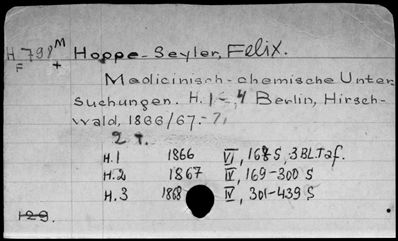 H 798 M Hoppe-Seyler, Felix.
F +
Medicinisch-chemische Unter
suchungen. H. 1-4 Berlin, Hirsch-
wald, 1866/67.-71
2 T.
H.1 1866 VI, 168 S, 3 BL.Taf.
H.2 1867 IV, 169-300 S
H.3 1868 IV, 301-439 S
129.